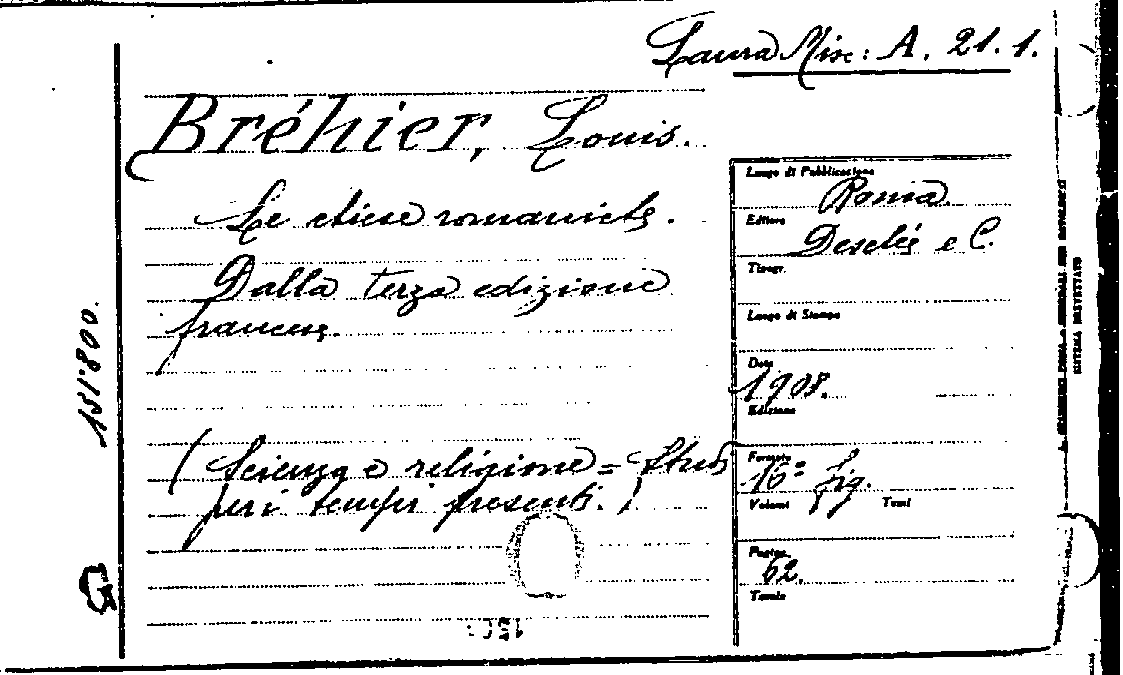 Laura Misc: A. 21.1.
Bréhier, Louis.
Le chiese romaniche.
Dalla terza edizione
francese.
(Scienza e religione = Studi
per i tempi presenti.)
Luogo di Pubblicazione
Roma
Editore
Desclée e C.
Tipogr.
Luogo di Stampa
Data
1908.
Edizione
Formato
16º fig.
Volumi Tomi
Pagine
62.
Tavole
151.800.
SISTEMA BREVETTATO